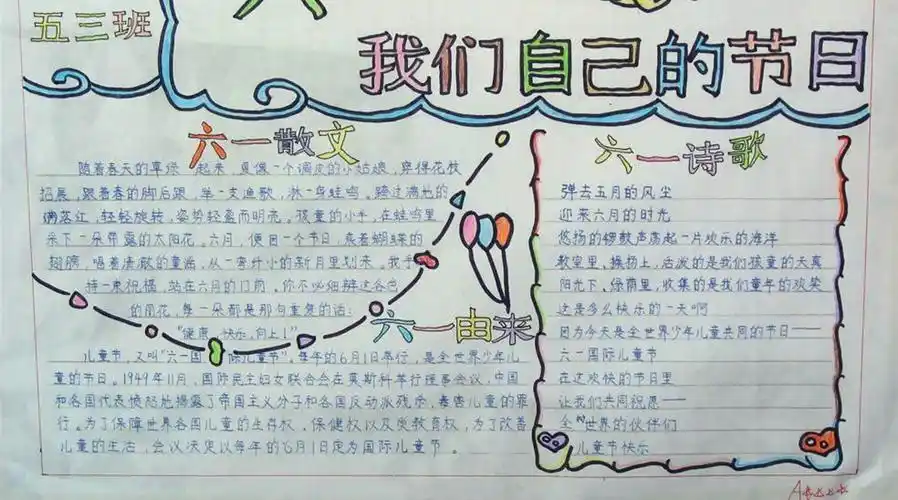 五三班
六一
我们自己的节日
六一散文
随着春天的尊 一起来，夏像一个调皮的小姑娘，穿得花枝
招展，跟着春的脚后跟，举一支渔歌，淋一身蛙鸣。跨过满地的
满落红，轻轻旋转，姿势轻盈而明亮。孩童的小手，在蛙鸣里
采下一朵带露的太阳花。六月，便因一个节日，乘着蝴蝶的
翅膀，唱着清澈的童谣，从一弯纤小的新月里划来。我手
持一束祝福，站在六月的门前。你不必细辨这各色
的朋花，每一朵都是那句重复的话：
“健康、快乐、向上！”
六一由来
儿童节，又叫“六一国际儿童节”，每年的6月1日举行，是全世界少年儿
童的节日。1949年11月，国际民主妇女联合会在莫斯科举行理事会议，中国
和各国代表愤怒地揭露了帝国主义分子和各国反动派残杀、毒害儿童的罪
行。为了保障世界各国儿童的生存权、保健权以及受教育权，为了改善
儿童的生活，会议决定以每年的6月1日定为国际儿童节。
六一诗歌
弹去五月的风尘
迎来六月的时光
悠扬的锣鼓声荡起一片欢乐的海洋
教室里，操场上，活泼的是我们孩童的天真
阳光下，绿荫里，收集的是我们童年的欢笑
这是多么快乐的一天啊
因为今天是全世界少年儿童共同的节日——
六一国际儿童节
在这欢快的节日里
让我们共同祝愿——
全世界的伙伴们
儿童节快乐